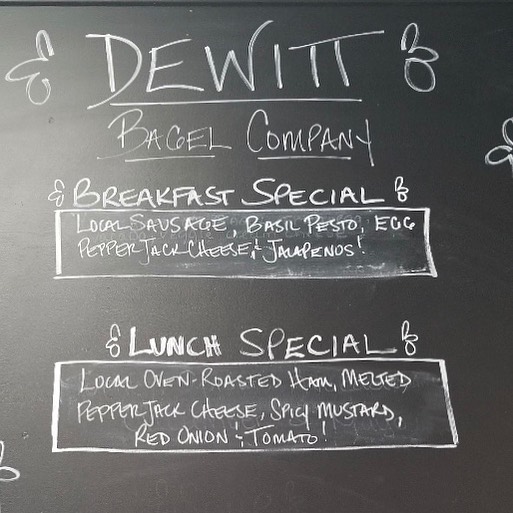 DEWITT
BAGEL COMPANY
BREAKFAST SPECIAL
LOCAL SAUSAGE, BASIL PESTO, EGG
PEPPER JACK CHEESE & JALAPENOS!
LUNCH SPECIAL
LOCAL OVEN-ROASTED HAM, MELTED
PEPPER JACK CHEESE, SPICY MUSTARD,
RED ONION & TOMATO!